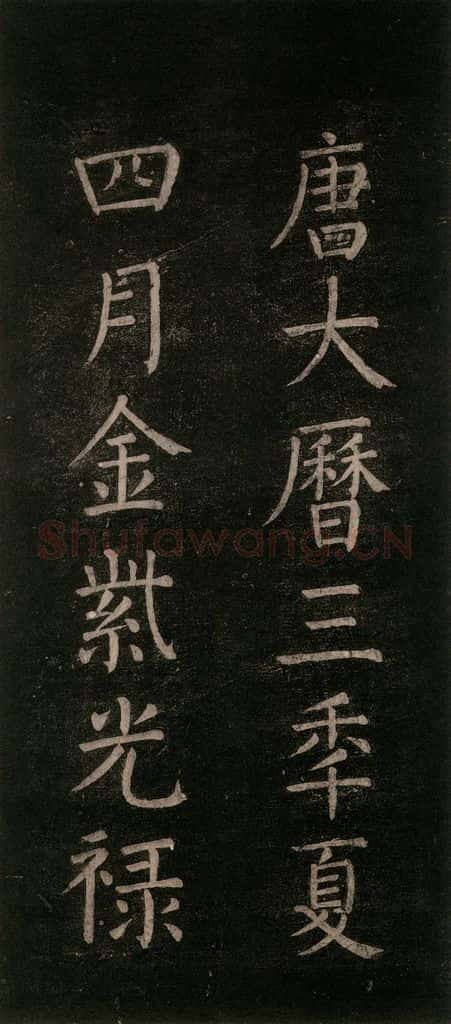 唐大曆三秊夏
四月金紫光禄
Shufawang.CN